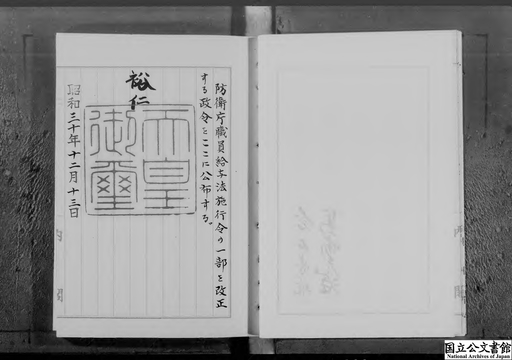 防衛庁職員給与法施行令の一部を改正
する政令をここに公布する。
裕仁
天皇御璽
昭和三十年十二月十三日
国立公文書館
National Archives of Japan